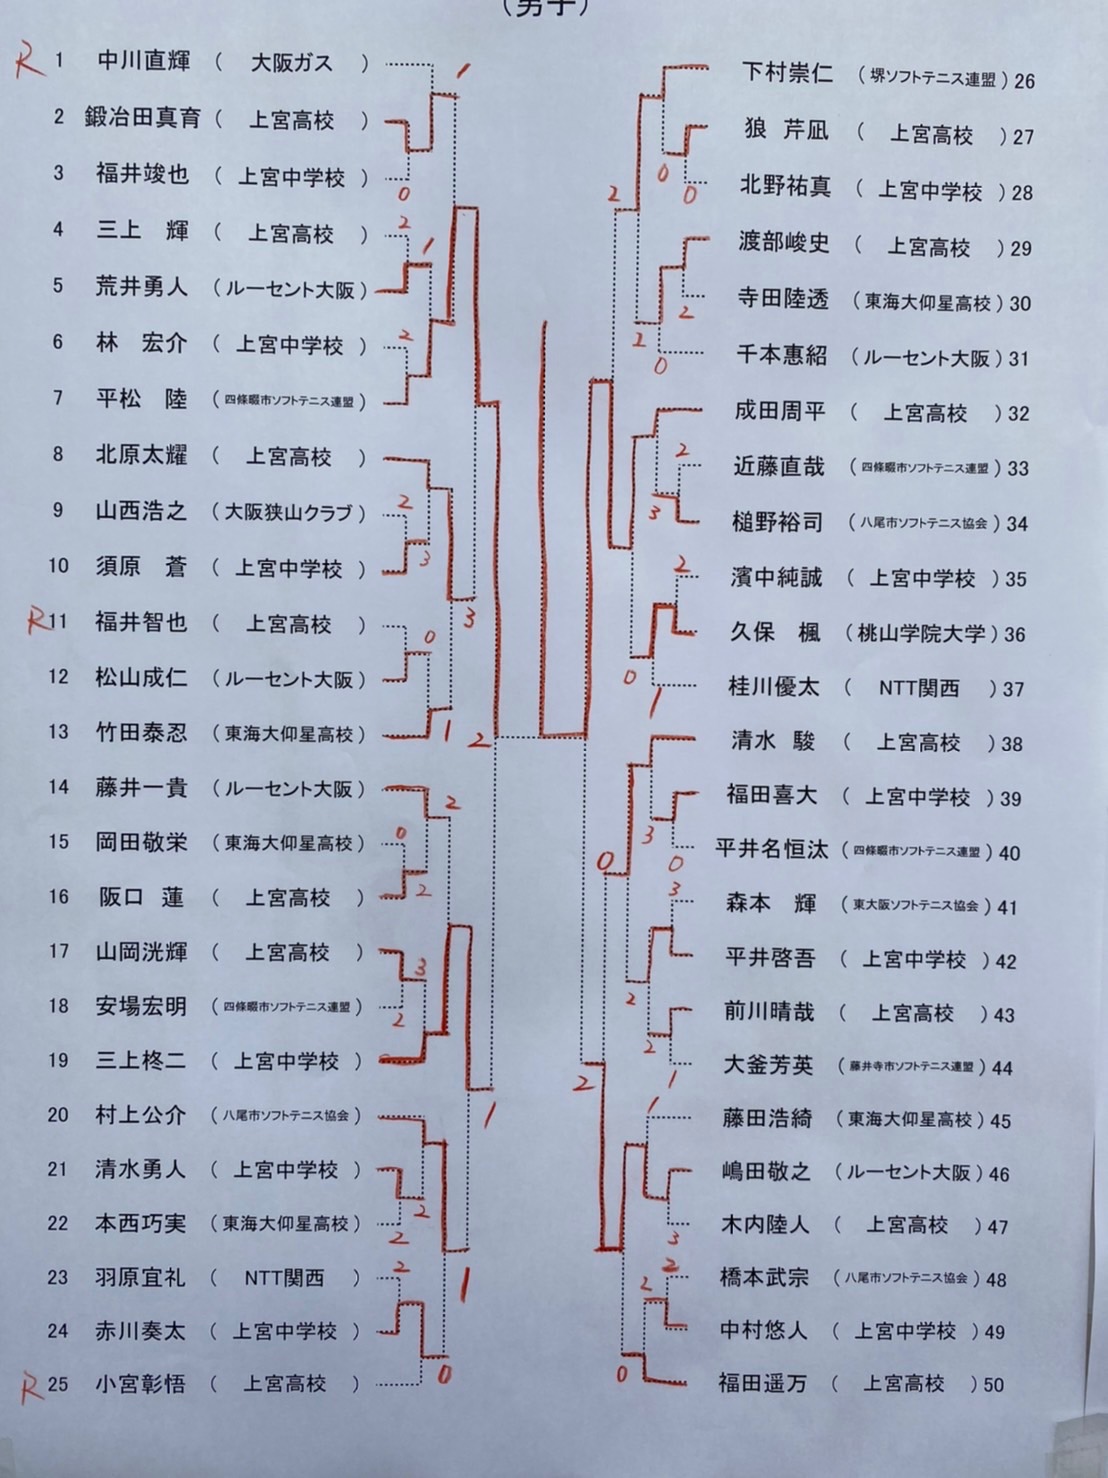 （男子）
R 1 中川直輝 （ 大阪ガス ）
2 鍛冶田真育 （ 上宮高校 ）
3 福井竣也 （ 上宮中学校 ）
4 三上 輝 （ 上宮高校 ）
5 荒井勇人 （ルーセント大阪）
6 林 宏介 （ 上宮中学校 ）
7 平松 陸 （四條畷市ソフトテニス連盟）
8 北原太耀 （ 上宮高校 ）
9 山西浩之 （大阪狭山クラブ）
10 須原 蒼 （ 上宮中学校 ）
R 11 福井智也 （ 上宮高校 ）
12 松山成仁 （ルーセント大阪）
13 竹田泰忍 （東海大仰星高校）
14 藤井一貴 （ルーセント大阪）
15 岡田敬栄 （東海大仰星高校）
16 阪口 蓮 （ 上宮高校 ）
17 山岡洸輝 （ 上宮高校 ）
18 安場宏明 （四條畷市ソフトテニス連盟）
19 三上柊二 （ 上宮中学校 ）
20 村上公介 （八尾市ソフトテニス協会）
21 清水勇人 （ 上宮中学校 ）
22 本西巧実 （東海大仰星高校）
23 羽原宜礼 （ NTT関西 ）
24 赤川奏太 （ 上宮中学校 ）
R 25 小宮彰悟 （ 上宮高校 ）
1
0
2
1
2
2
3
3
0
1
2
2
0
2
3
2
1
2
2
2
1
0
下村崇仁 （堺ソフトテニス連盟）26
狼 芹凪 （ 上宮高校 ）27
北野祐真 （ 上宮中学校 ）28
渡部峻史 （ 上宮高校 ）29
寺田陸透 （東海大仰星高校）30
千本惠紹 （ルーセント大阪）31
成田周平 （ 上宮高校 ）32
近藤直哉 （四條畷市ソフトテニス連盟）33
槌野裕司 （八尾市ソフトテニス協会）34
濱中純誠 （ 上宮中学校 ）35
久保 楓 （桃山学院大学）36
桂川優太 （ NTT関西 ）37
清水 駿 （ 上宮高校 ）38
福田喜大 （ 上宮中学校 ）39
平井名恒汰 （四條畷市ソフトテニス連盟）40
森本 輝 （東大阪ソフトテニス協会）41
平井啓吾 （ 上宮中学校 ）42
前川晴哉 （ 上宮高校 ）43
大釜芳英 （藤井寺市ソフトテニス連盟）44
藤田浩綺 （東海大仰星高校）45
嶋田敬之 （ルーセント大阪）46
木内陸人 （ 上宮高校 ）47
橋本武宗 （八尾市ソフトテニス協会）48
中村悠人 （ 上宮中学校 ）49
福田遥万 （ 上宮高校 ）50
0
0
2
2
2
0
2
3
2
0
1
3
0
0
3
2
2
1
2
1
3
2
2
0